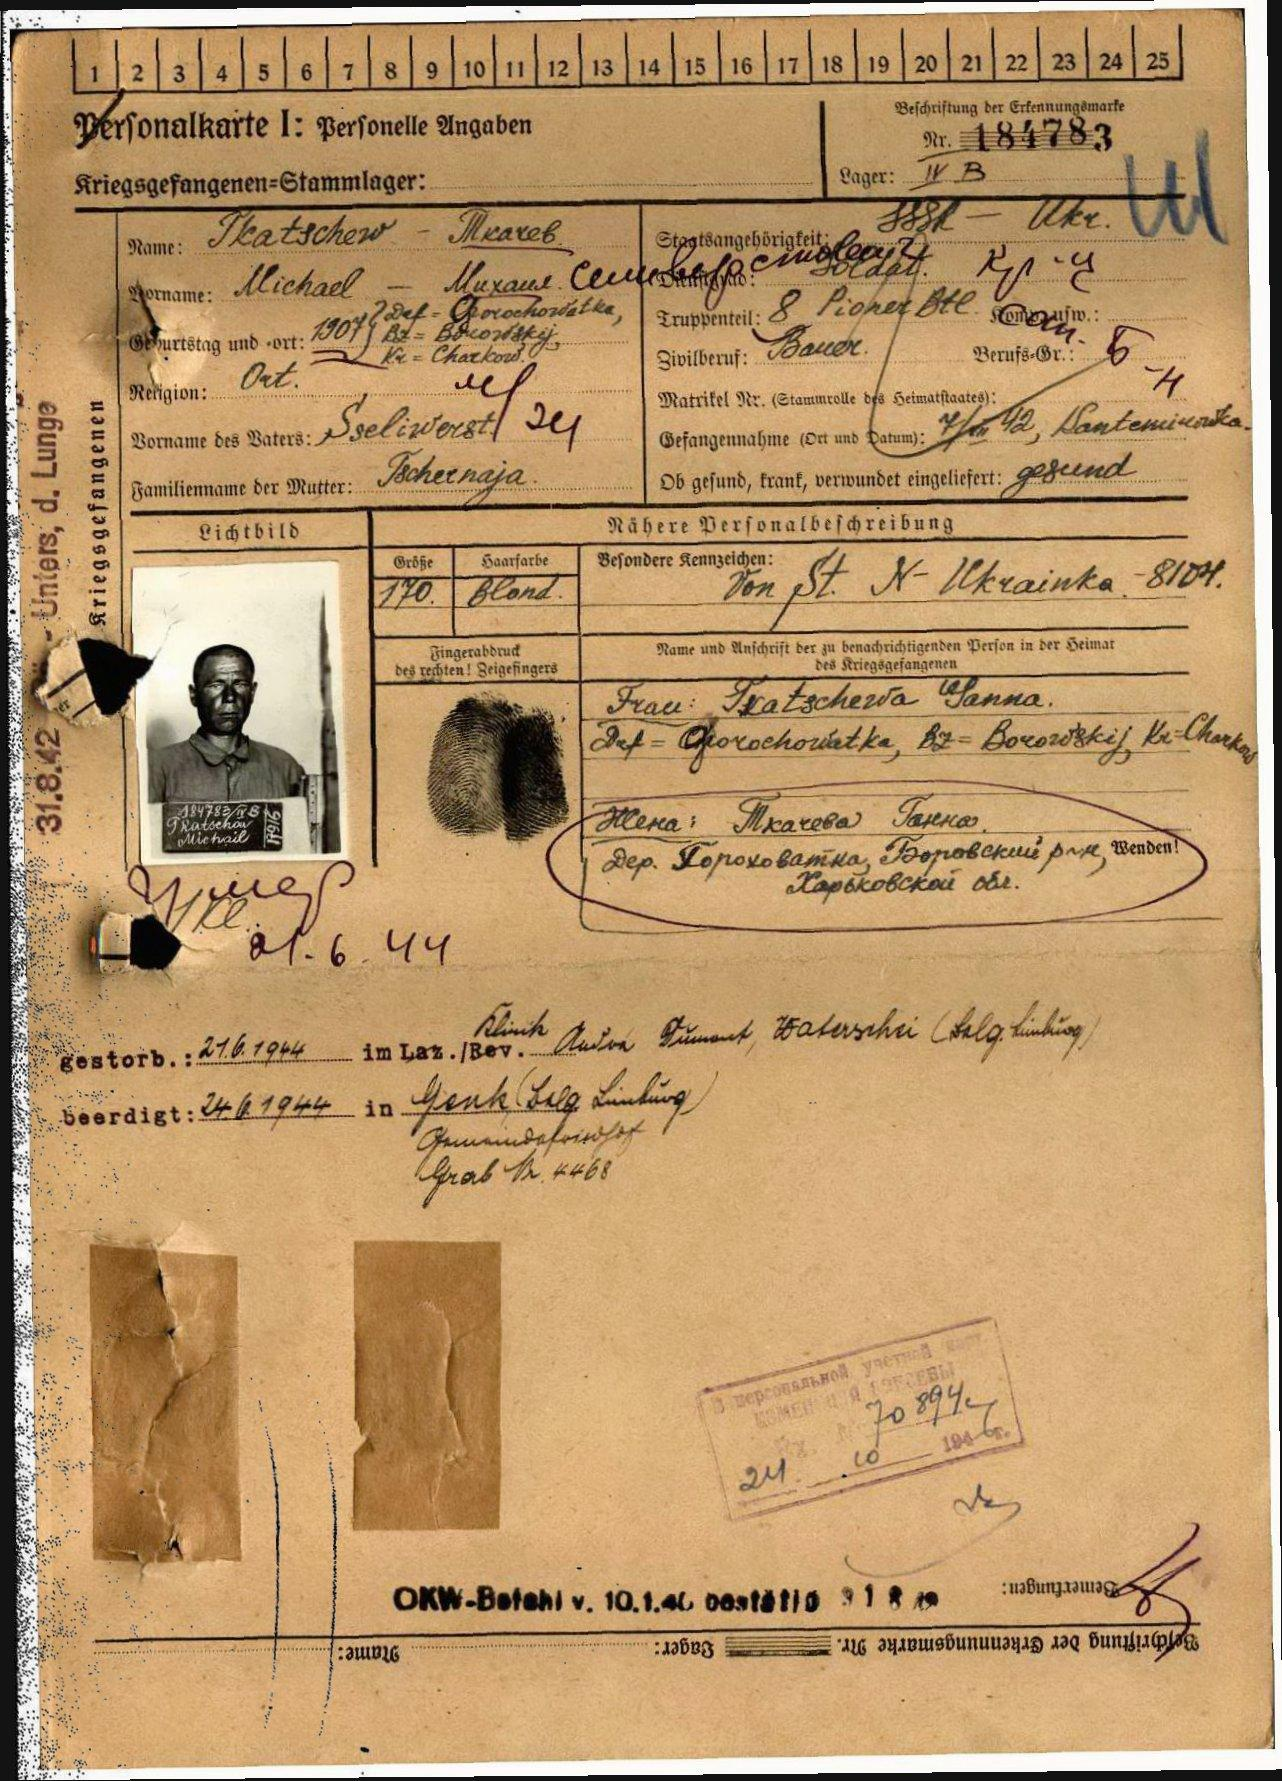 1 2 3 4 5 6 7 8 9 10 11 12 13 14 15 16 17 18 19 20 21 22 23 24 25
Personalkarte I: Personelle Angaben
Beschriftung der Erkennungsmarke
Nr. 184783
Kriegsgefangenen-Stammlager:
Lager: IV B
Name: Tkatschew - Ткачев
Vorname: Michael - Михаил Селиверстович
Geburtstag und -ort: 1907, Dof = Gorochowatka,
Bz = Borowskij,
Kr = Charkow.
Religion: Ort.
Vorname des Vaters: Sseliwerst
Familienname der Mutter: Tschernaja.
Staatsangehörigkeit: SSSR - Ukr.
Dienstgrad: Soldat. Кр-ц
Truppenteil: 8 Pioner Btl. Komp. usw.:
Zivilberuf: Bauer. Berufs-Gr.:
Matrikel Nr. (Stammrolle des Heimatstaates):
Gefangennahme (Ort und Datum): 7/VII 42, Kantemirowka.
Ob gesund, krank, verwundet eingeliefert: gesund
Kriegsgefangenen
31.8.42 Unters. d. Lunge
Lichtbild
Nähere Personalbeschreibung
Größe Haarfarbe
170. Blond.
Besondere Kennzeichen:
Von St. N- Ukrainka - 8104.
Fingerabdruck
des rechten! Zeigefingers
Name und Anschrift der zu benachrichtigenden Person in der Heimat
des Kriegsgefangenen
Frau: Tkatschewa Hanna.
Dof = Gorochowatka, Bz = Borowskij, Kr = Charkow
Жена: Ткачева Ганна.
Дер. Гороховатка, Боровский р-н,
Харьковской обл.
Wenden!
184783/IVB
Tkatschow
Michail
Умер
21.6.44
gestorb.: 21.6.1944 im Laz./Rev. Klinik André Dumont, Waterschei (Belg. Limburg)
beerdigt: 24.6.1944 in Genk (Belg. Limburg)
Gemeindefriedhof
Grab Nr. 4468
В персональной учетной карт.
70894
24 10 194 г.
OKW-Befehl v. 10.1.40 bestätig
Bemerkungen:
Beschriftung der Erkennungsmarke Nr. Lager: Name: